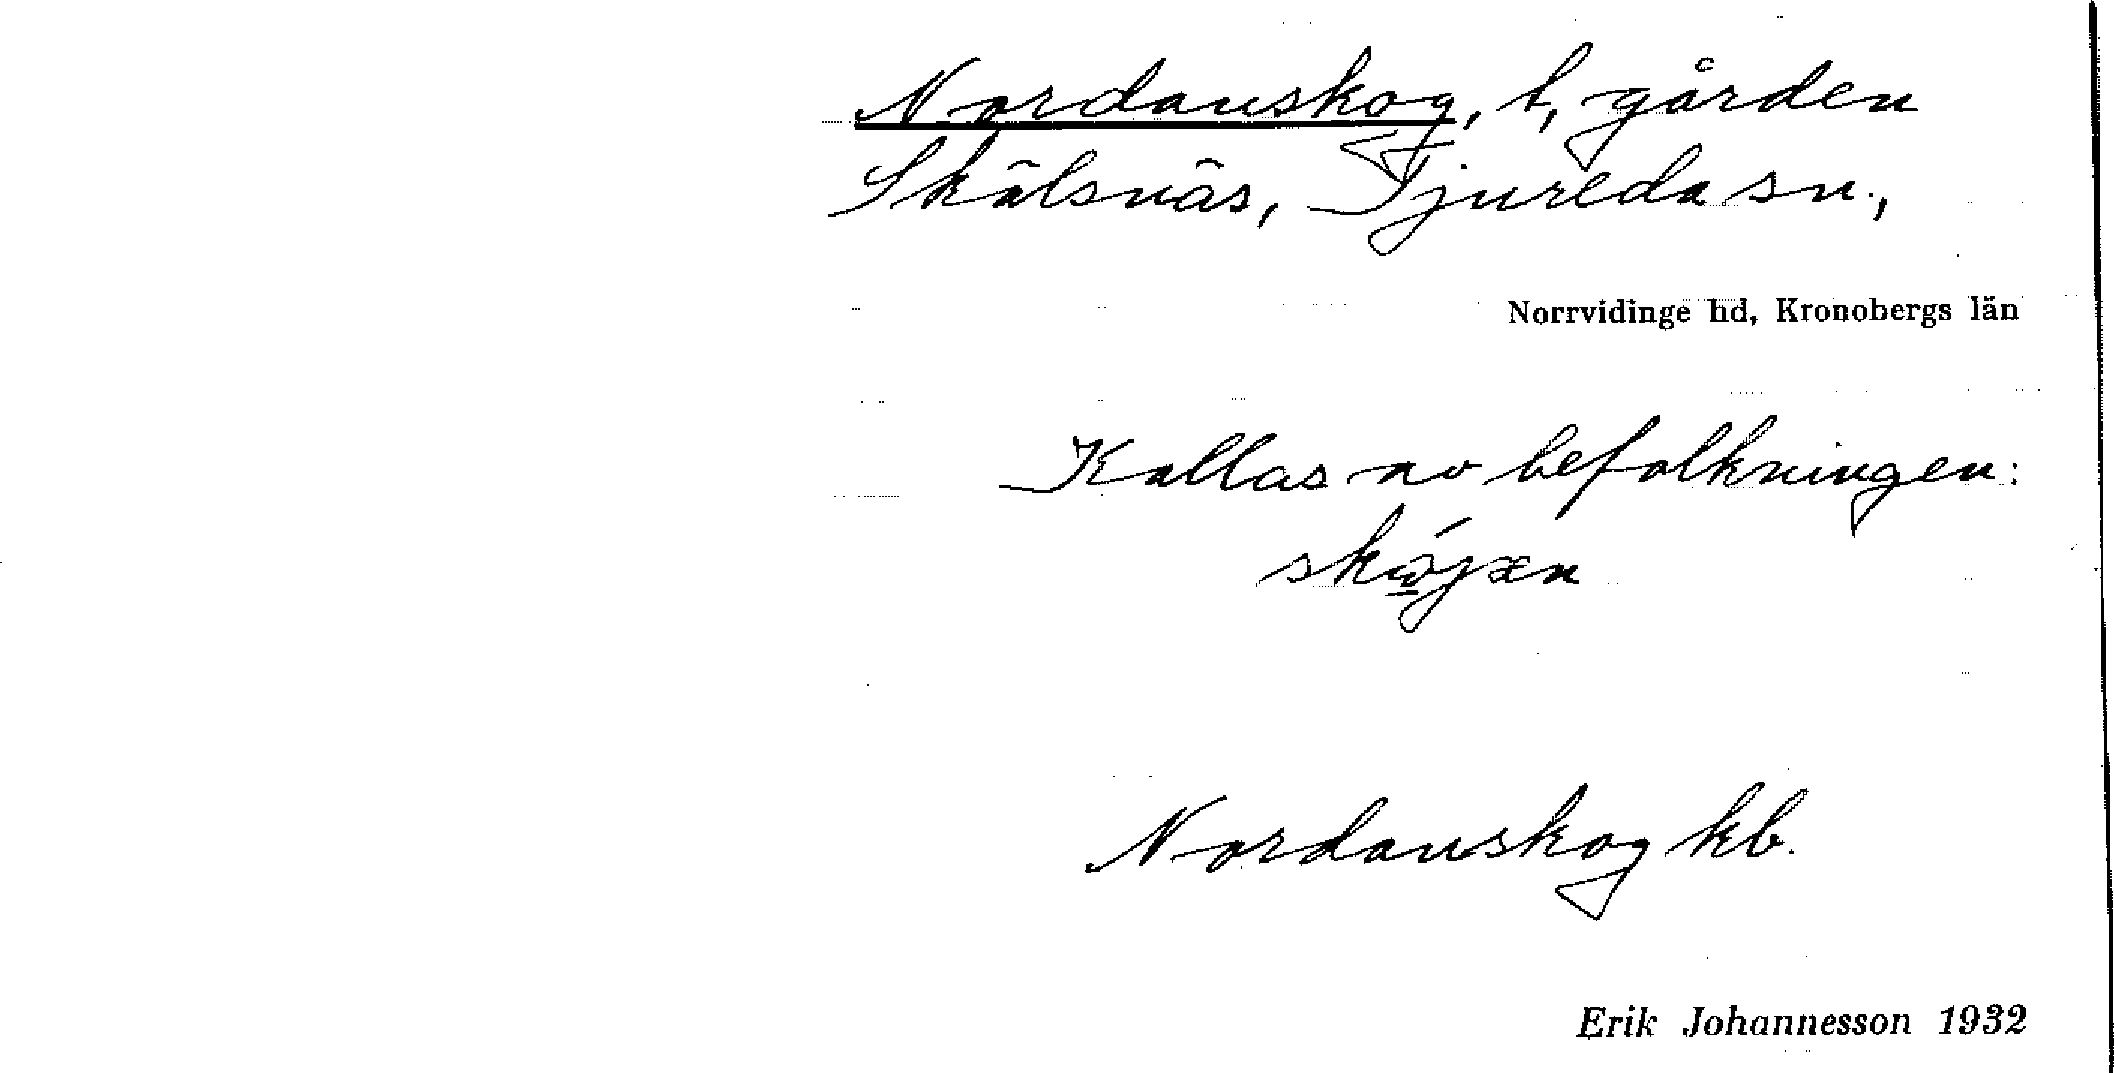 Nordanskog, t, gården
Skälsnäs, Tjureda sn.,
Norrvidinge hd, Kronobergs län
Kallas av befolkningen:
Nordanskog kb.
Erik Johannesson 1932